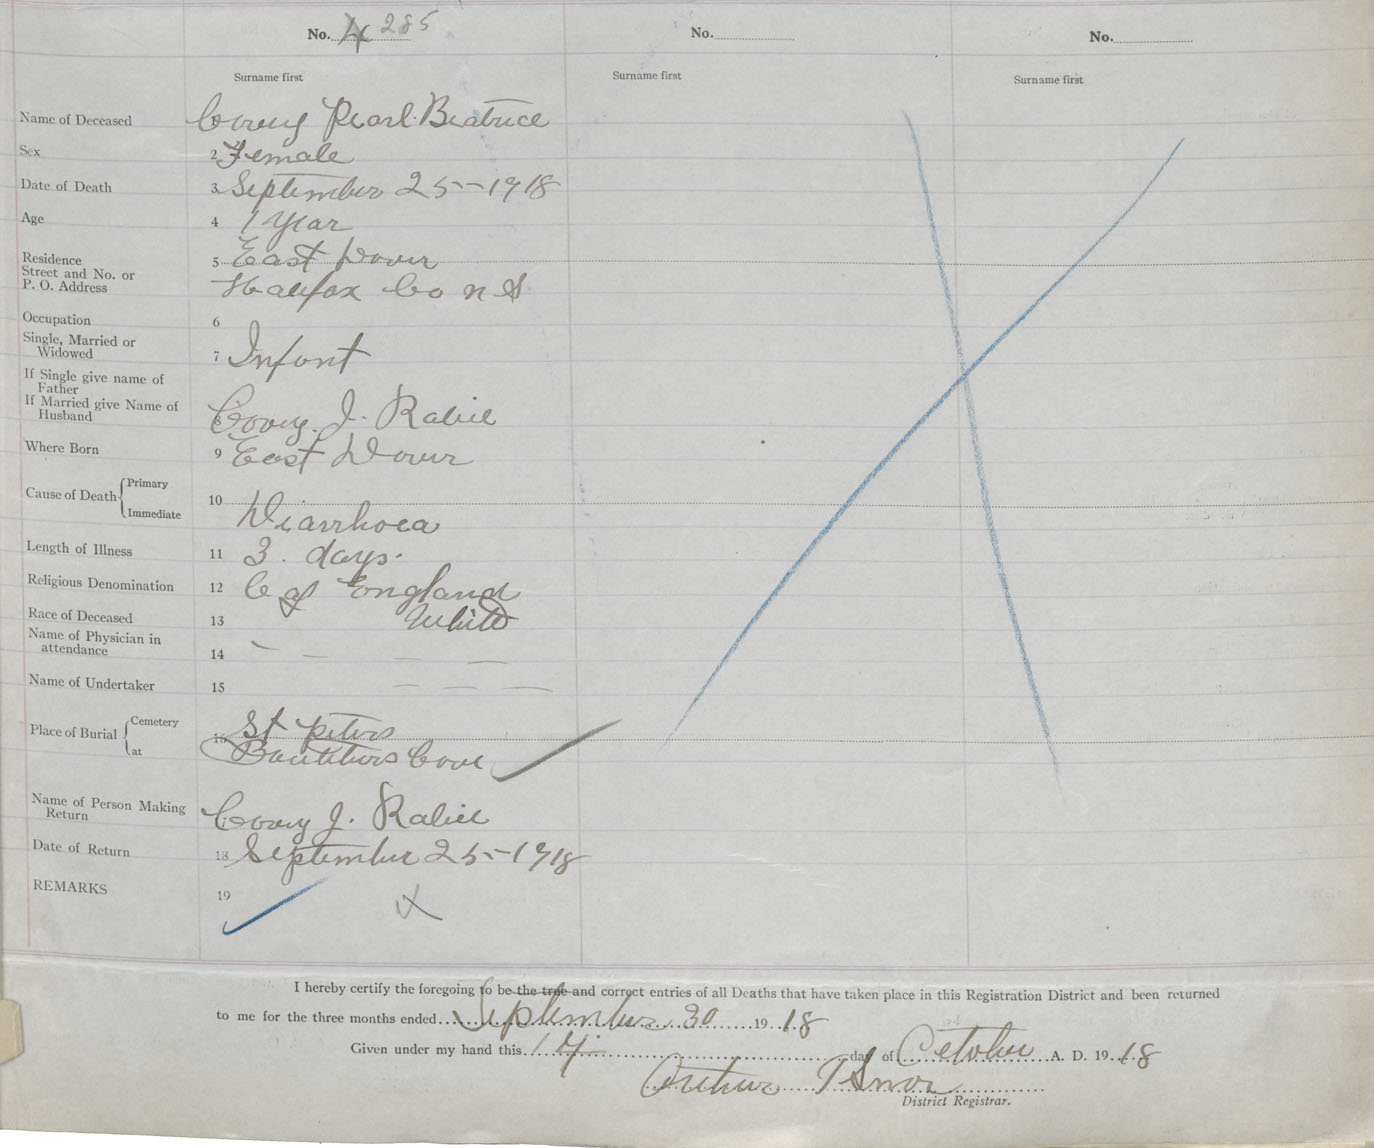 No. 4 285 No. No.
Surname first Surname first Surname first
Name of Deceased Corey Pearl Beatrice
Sex 2 Female
Date of Death 3 September 25-1918
Age 4 1 Year
Residence 5 East Dover
Street and No. or
P. O. Address Halifax Co N S
Occupation 6
Single, Married or
Widowed 7 Infant
If Single give name of
Father
If Married give Name of
Husband 8 Corey J.
Where Born 9 East Dover
Cause of Death Primary 10
Immediate Diarrhoea
Length of Illness 11 3 days.
Religious Denomination 12 C of England
Race of Deceased 13 White
Name of Physician in
attendance 14 — — — —
Name of Undertaker 15 — — —
Place of Burial Cemetery 16 St Peters
at Cove
Name of Person Making
Return Corey J.
Date of Return 18 September 25-1918
REMARKS 19
I hereby certify the foregoing to be the true and correct entries of all Deaths that have taken place in this Registration District and been returned
to me for the three months ended September 30 1918
Given under my hand this day of October A. D. 1918
Arthur T
District Registrar.